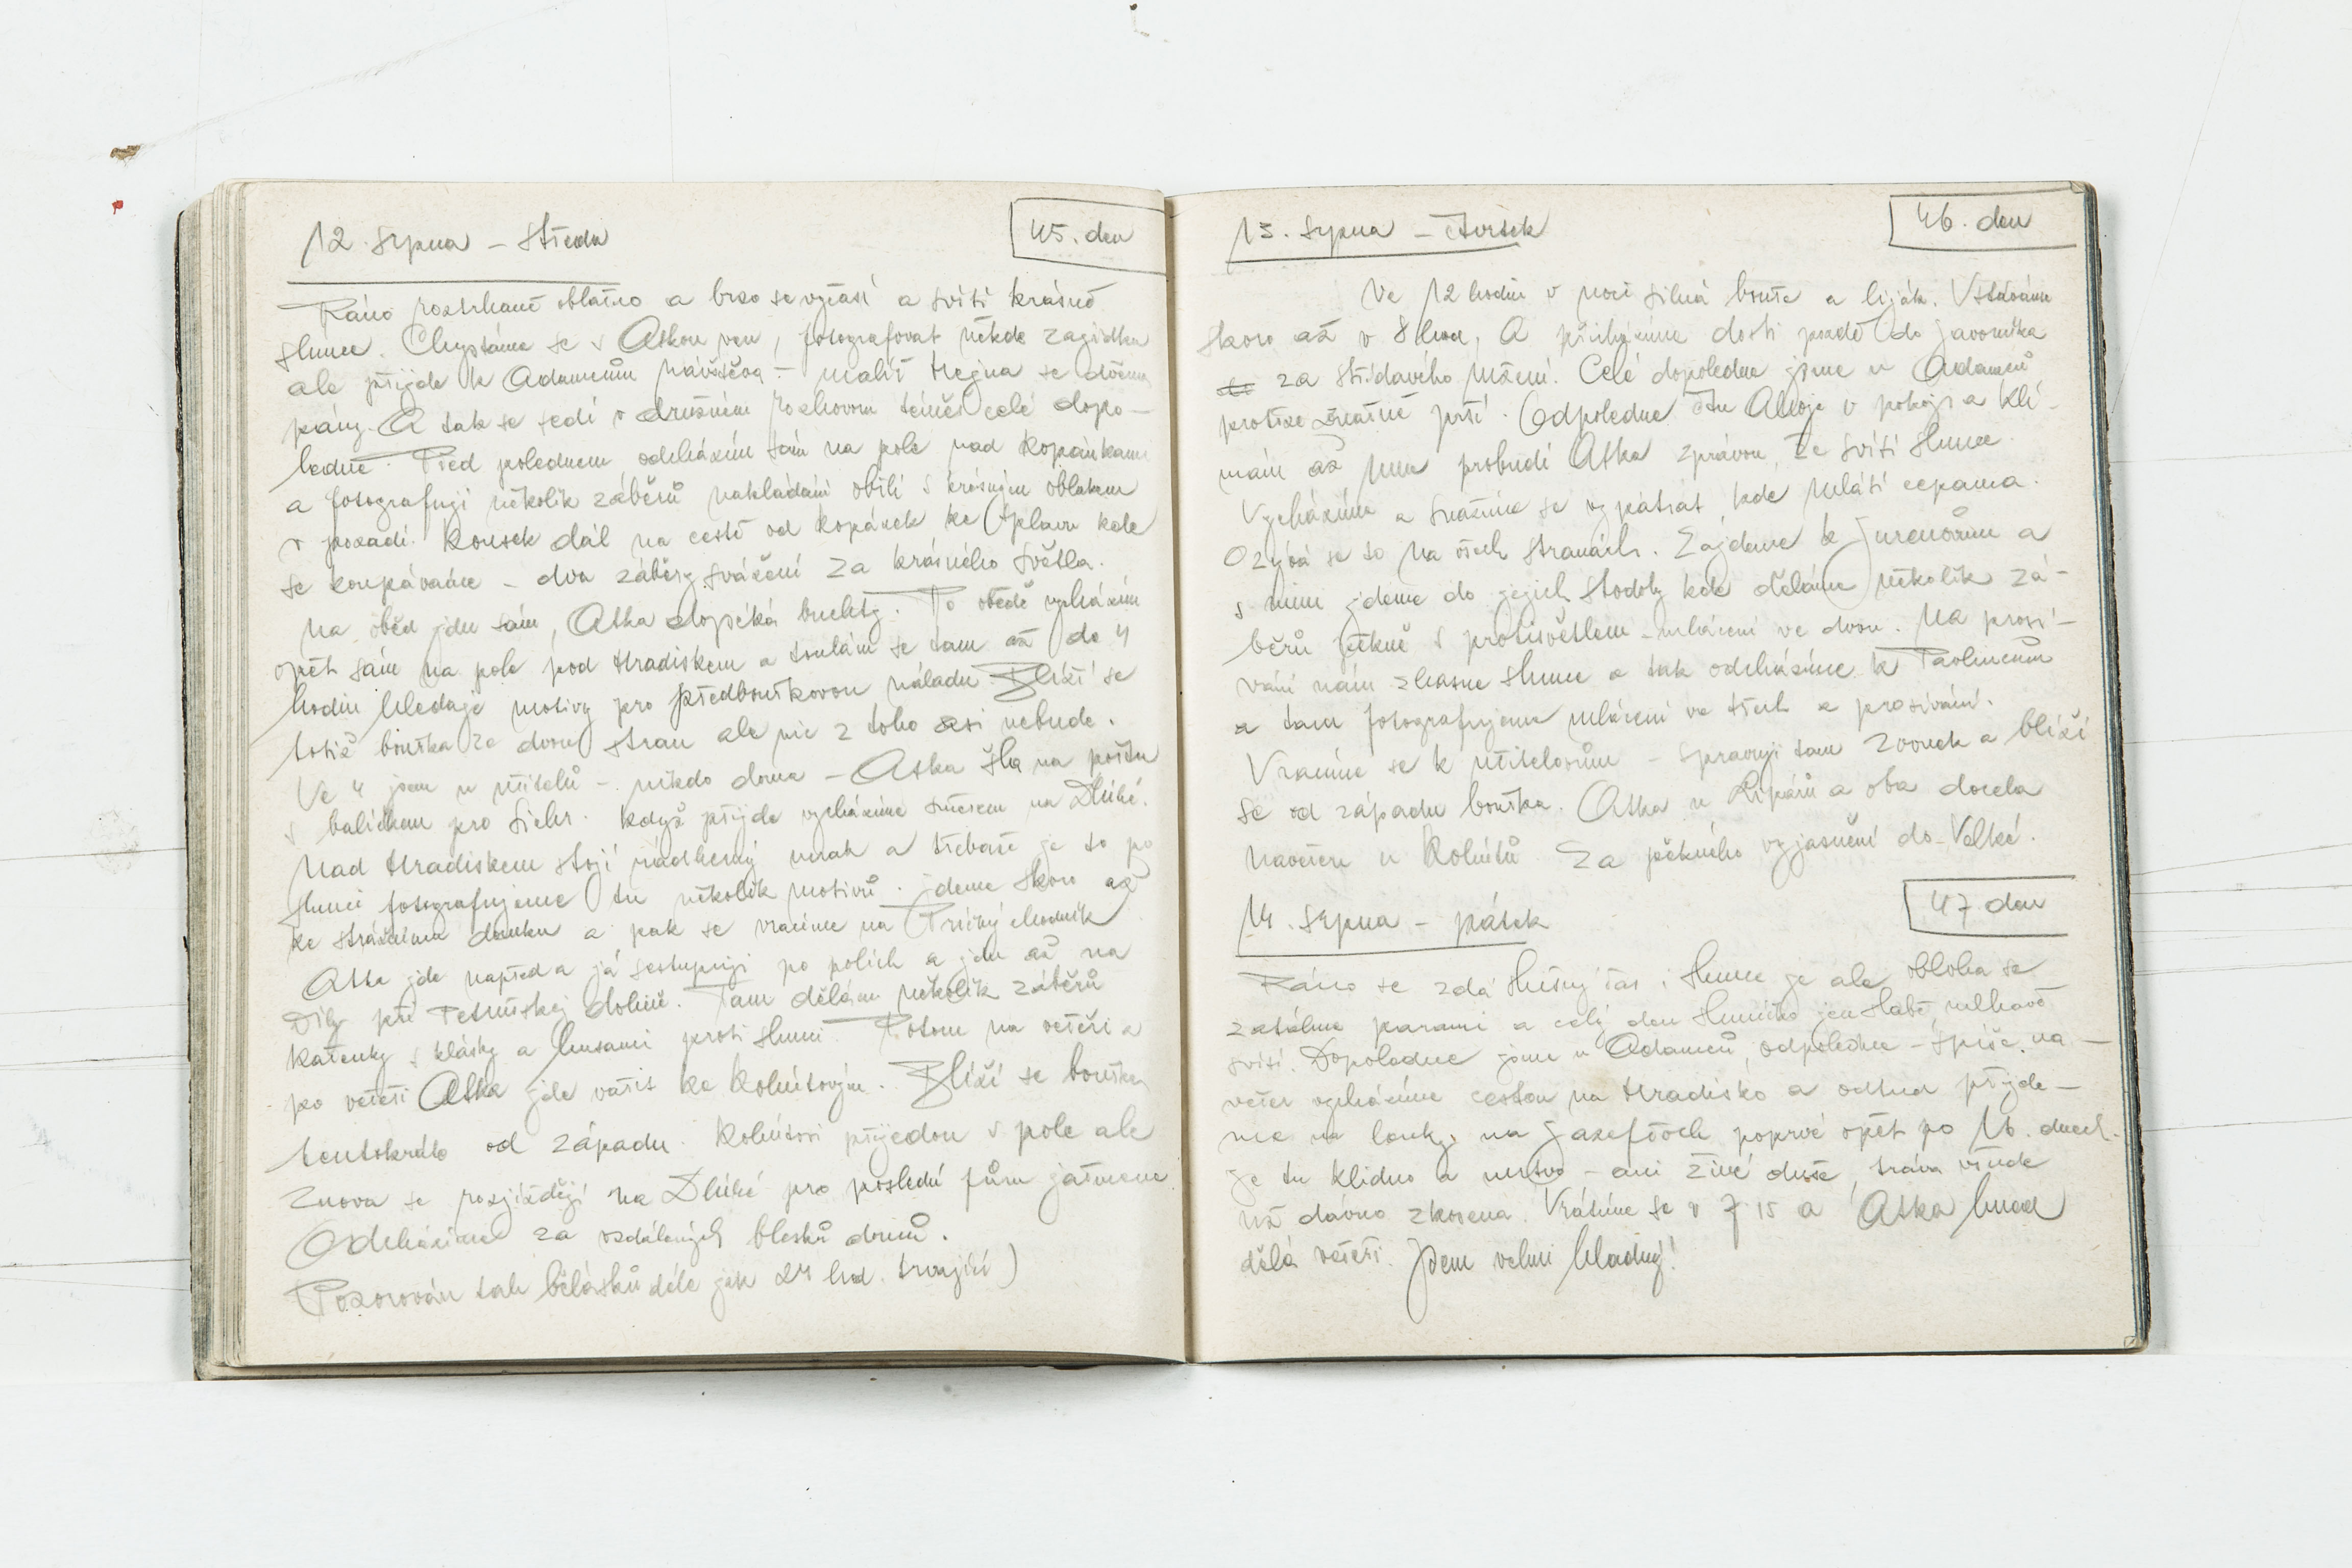 12. srpna – středa
45. den
Ráno roztrhaně oblačno a brzo se vyčasí a svítí krásně
slunce. Chystáme se s Aťkou ven, fotografovat někde
ale přijde k Adamcům návštěva – malíř Hejna se dvěma
pány. A tak se sedí v družném rozhovoru téměř celé dopo–
ledne. Před polednem odcházím sám na pole nad Kopánkami
a fotografuji několik záběrů nakládání obilí s krásným oblakem
v pozadí. Kousek dál na cestě od Kopánek ke splavu kde
se koupáváme – dva záběry svážení za krásného světla.
Na oběd jdu sám, Aťka dopéká buchty. Po obědě vycházím
opět sám na pole pod Hradiskem a toulám se tam až do 4
hodin hledaje motivy pro předbouřkovou náladu. Blíží se
totiž bouřka ze dvou stran ale nic z toho asi nebude.
Ve 4 jsem u učitelů – nikdo doma – Aťka šla na poštu
s balíčkem pro . Když přijde vycházíme směrem na Dlúhé.
Nad Hradiskem stojí nádherný mrak a třebaže je to po
slunci fotografujeme tu několik motivů. jdeme skoro až
ke strážnímu domku a pak se vracíme na Příčný chodník
Aťka jde napřed a já sestupuji po polích a jdu až na
Díly při Petrušskej dolině. Tam dělám několik záběrů
Kačenky s klásky a husami proti slunci. Potom na večeři a
po večeři Aťka jde vařit ke Kohútovým. Blíží se bouřka
tentokráte od západu. Kohútovi přijedou s pole ale
znova se rozjíždějí na Dlúhé pro poslední fůru ječmene
Odcházíme za vzdálených blesků domů.
(Pozorován tah bělásků déle jak 24 hod. trvající)
13. srpna – čtvrtek
46. den
Ve 12 hodin v noci silná bouře a liják. Vstáváme
skoro až v 8 hod. A přicházíme dosti pozdě do Javorníka
za střídavého mžení. Celé dopoledne jsme u Adamců
protože značně prší. Odpoledne čtu v pokoji a klí–
mám až mne probudí Aťka zprávou, že svítí slunce.
Vycházíme a snažíme se vypátrat, kde mlátí cepama.
Ozývá se to na všech stranách. Zajdeme k Jurenovům a
s nimi jdeme do jejich stodoly kde děláme několik zá–
běrů pěkně s protisvětlem – mlácení ve dvou. Na prosí–
vání nám zhasne slunce a tak odcházíme k Pavlincům
a tam fotografujeme mlácení ve třech a prosívání.
Vracíme se k učitelovům – spravuji tam zvonek a blíží
se od západu bouřka. Aťka u Lipárů a oba docela
navečer u Kohútů. Za pěkného vyjasnění do Velké.
14. srpna – pátek
47 den
Ráno se zdá slušný čas i slunce je ale obloha se
zatáhne parami a celý den sluníčko jen slabě, mlhavě
svítí. Dopoledne jsme u Adamců, odpoledne – spíše na –
večer vycházíme cestou na Hradisko a odtud přijde–
me na louky na Jazefčoch poprvé opět po 16. dnech.
je tu klidno a mrtvo – ani živé duše, tráva všude
už dávno zkosena. Vrátíme se v 7 15 a Aťka hned
dělá večeři. Jsem velmi hladný!